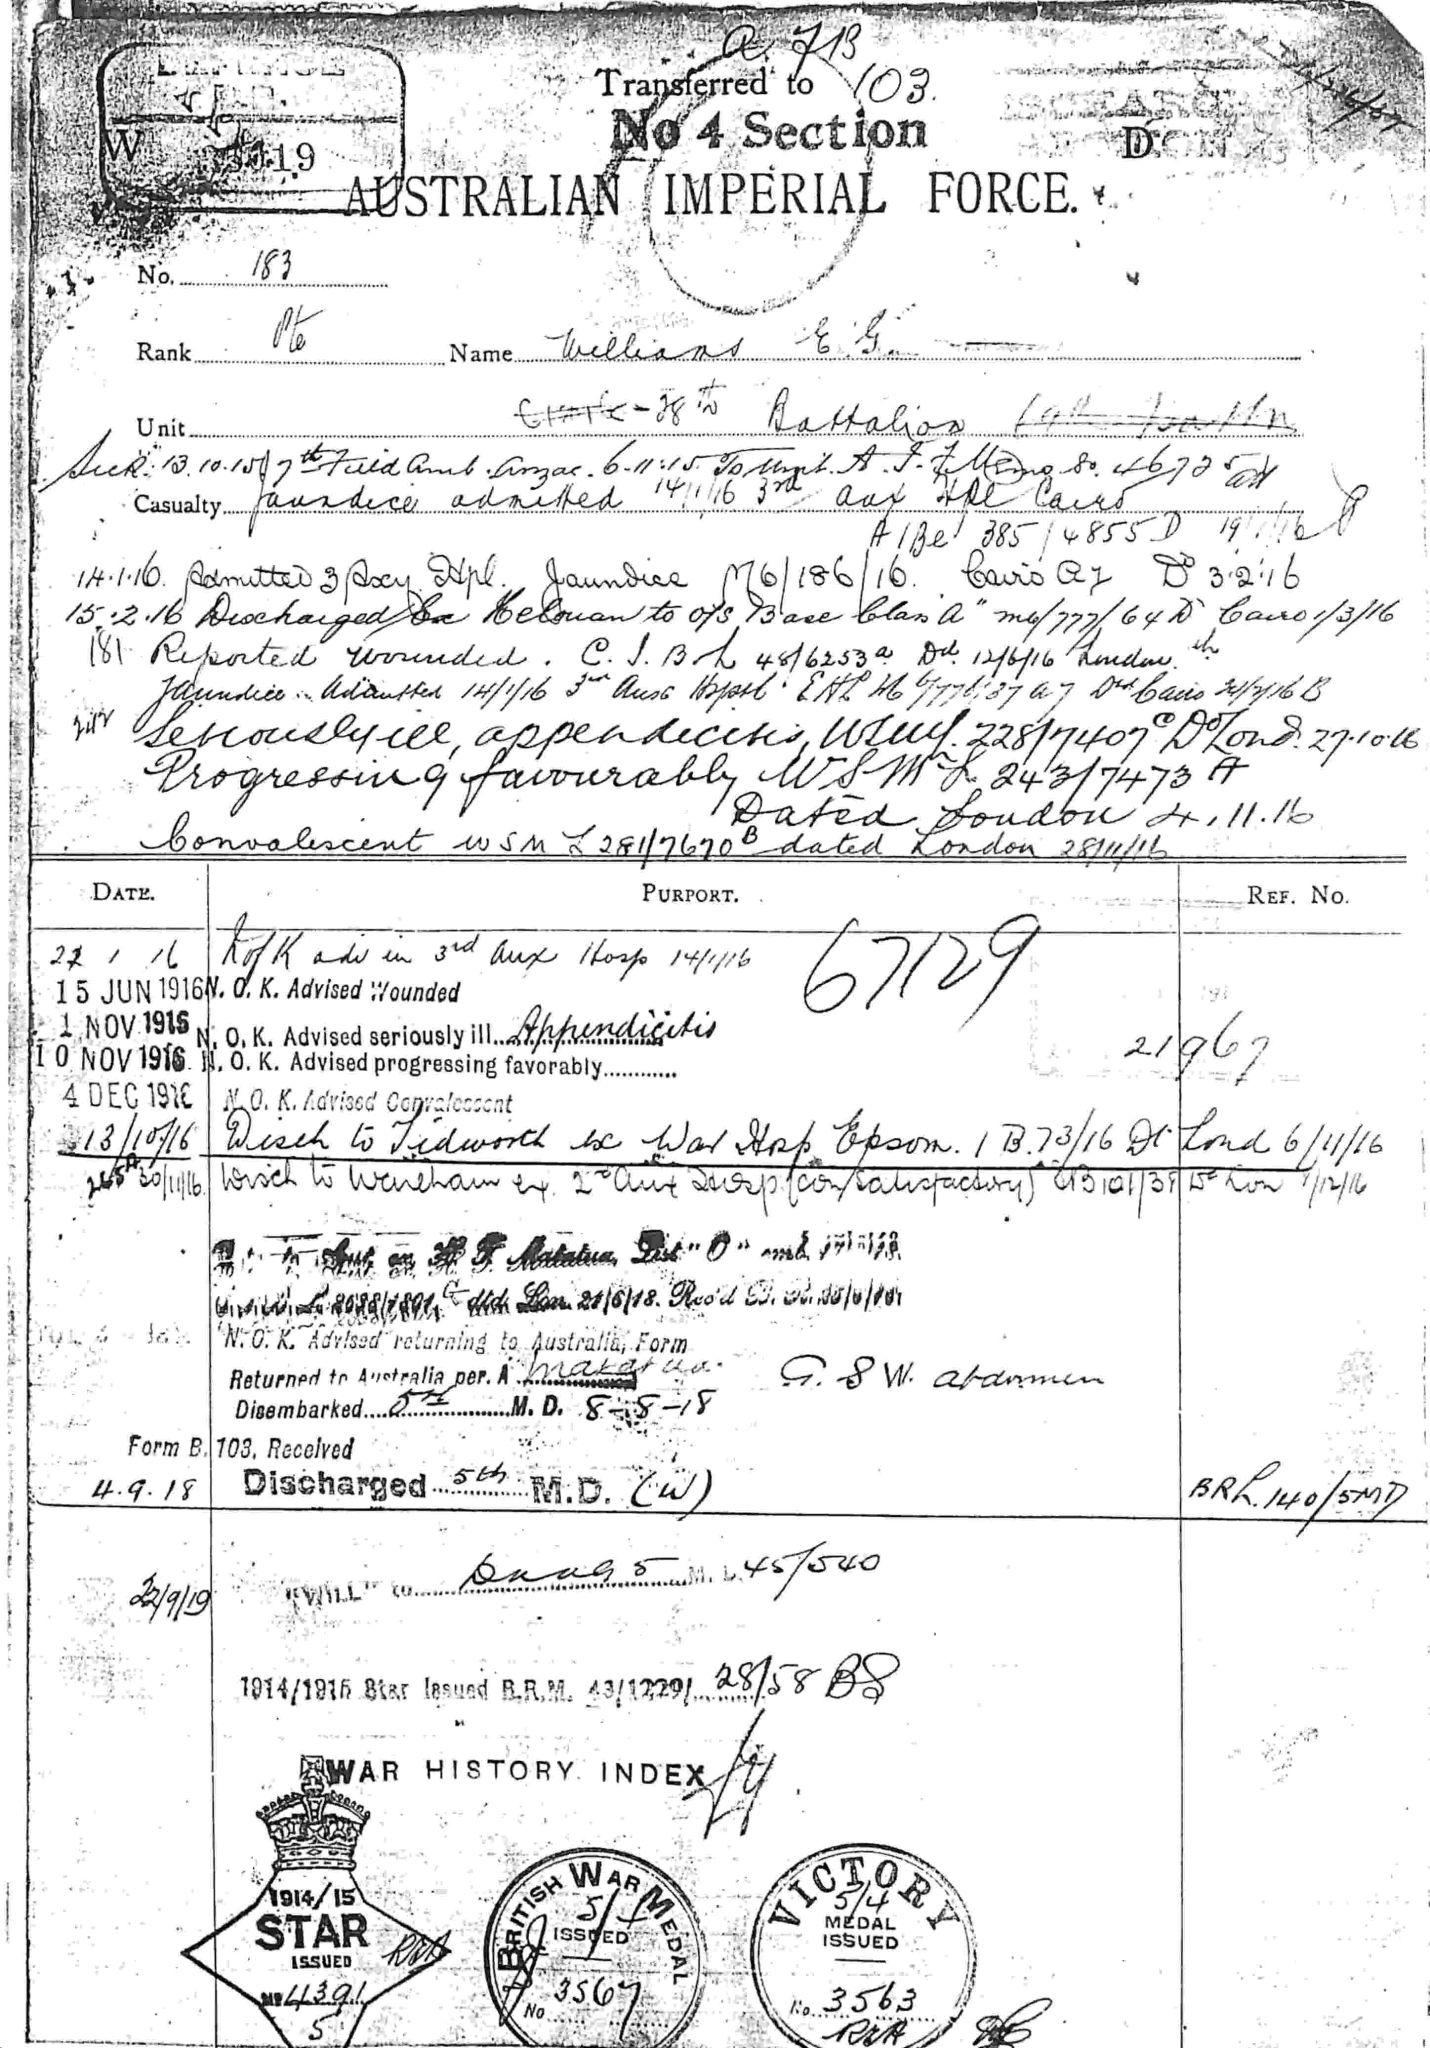 a. 713
Transferred to 103.
No 4 Section
D
W 19
AUSTRALIAN IMPERIAL FORCE.
No. 183
Rank Pte Name Williams E G.
Unit 38th Battalion
Sick 13.10.15 7th Field Amb. Anzac. 6.11.15 To Unit. A. F. 80. 4672
Casualty Jaundice admitted 14/1/16 3rd aux Hpl Cairo
385/4855 D 19/1/16
14.1.16. Admitted 3 Hpl. Jaundice M6/186/16. Cairo Dd 3.2.16
15.2.16 Discharged Ex Helouan to o/s Base Class A" M6/777/64 Dd Cairo 1/3/16
181 Reported wounded. C. I. B. L 48/6253a Dd. 12/6/16 London
Jaundice Admitted 14/1/16 3rd Aux Hosptl Dtd Cairo B
Seriously ill, appendicitis, WSML. 228/7407 C Dd Lond. 27.10.16
Progressing favourably WSML 243/7473 A
Dated London 4.11.16
Convalescent WSM L 281/7670 B dated London 28/11/16
DATE. PURPORT. REF. NO.
22 1 16 N of K adv in 3rd Aux Hosp 14/1/16
67129
15 JUN 1916 N. O. K. Advised Wounded
1 NOV 1916 N. O. K. Advised seriously ill Appendicitis
21967
10 NOV 1916. N. O. K. Advised progressing favorably
4 DEC 1916 N. O. K. Advised Convalescent
13/10/16 Disch to Tidworth ex War Hosp Epsom. 1 B. 73/16 Dt Lond 6/11/16
30/11/16 Disch to Wareham ex. 2nd Aux Hosp (con satisfactory) B101/38 Dd Lon 1/12/16
Aus ex H. T. Matatua, List "O"
dtd. Lon. 21/6/18. Rec'd
N. O. K. Advised returning to Australia, Form
Returned to Australia per. A Matatua.
G. S W. abdomen
Disembarked 5th M. D. 8-8-18
Form B. 103. Received
4.9.18 Discharged 5th M.D. (W) BRL. 140/5MD
22/9/19 "WILL" to M. L. 45/540
1914/1915 Star Issued B.R.M. 43/1229/ 28/58 BS
WAR HISTORY INDEX
1914/15
STAR
ISSUED
No 4391
5
BRITISH WAR MEDAL
ISSUED
No 3567
VICTORY
5/4
MEDAL
ISSUED
No. 3563